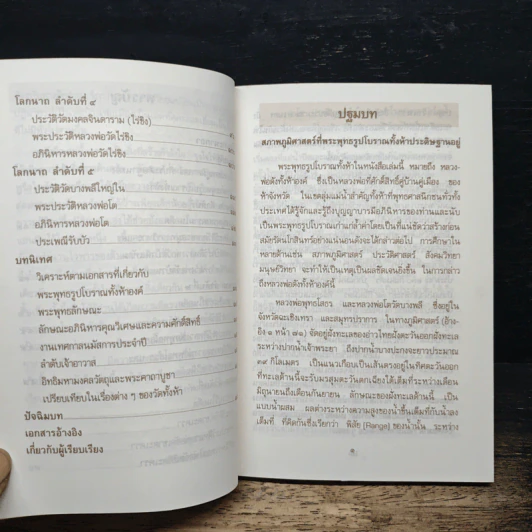 โลกนาถ ลำดับที่ ๔
ประวัติวัดมงคลจินดาราม (ไร่ขิง)
พระประวัติหลวงพ่อวัดไร่ขิง
อภินิหารหลวงพ่อวัดไร่ขิง
โลกนาถ ลำดับที่ ๕
ประวัติวัดบางพลีใหญ่ใน
พระประวัติหลวงพ่อโต
อภินิหารหลวงพ่อโต
ประเพณีรับบัว
บทนิเทศ
วิเคราะห์ตามเอกสารที่เกี่ยวกับ
พระพุทธรูปโบราณทั้งห้าองค์
พระพุทธลักษณะ
ลักษณะอภินิหารคุณวิเศษและความศักดิ์สิทธิ์
งานเทศกาลนมัสการประจำปี
ลำดับเจ้าอาวาส
อิทธิมหามงคลวัตถุและพระคาถาบูชา
เปรียบเทียบในเรื่องต่าง ๆ ของวัดทั้งห้า
ปัจฉิมบท
เอกสารอ้างอิง
เกี่ยวกับผู้เรียบเรียง
ปฐมบท
สภาพภูมิศาสตร์ที่พระพุทธรูปโบราณทั้งห้าประดิษฐานอยู่
พระพุทธรูปโบราณทั้งห้าในหนังสือเล่มนี้ หมายถึง หลวง-
พ่อดังทั้งห้าองค์ ซึ่งเป็นหลวงพ่อที่ศักดิ์สิทธิ์คู่บ้านคู่เมือง ของ
ห้าจังหวัด ในเขตลุ่มแม่น้ำสำคัญทั้งห้าที่พุทธศาสนิกชนทั่วทั้ง
ประเทศได้รู้จักและรู้ถึงบุญญาบารมีอภินิหารของท่านและนับ
เป็นพระพุทธรูปโบราณเก่าแก่ล้ำค่าโดยเป็นที่แน่ชัดว่าสร้างก่อน
สมัยรัตนโกสินทร์อย่างแน่นอนดังจะได้กล่าวต่อไป การศึกษาใน
หลายด้านเช่น สภาพภูมิศาสตร์ ประวัติศาสตร์ สังคมวิทยา
มนุษย์วิทยา จะทำให้เป็นเหตุเป็นผลชัดเจนยิ่งขึ้น ในการกล่าว
ถึงหลวงพ่อดังทั้งห้าองค์นี้
หลวงพ่อพุทธโสธร และหลวงพ่อโตวัดบางพลี ซึ่งอยู่ใน
จังหวัดฉะเชิงเทรา และสมุทรปราการ ในทางภูมิศาสตร์ (อ้าง-
อิง ๑ หน้า ๘๑) จัดอยู่ฝั่งทะเลของอ่าวไทยฝั่งตะวันออกฝั่งทะเล
ระหว่างปากน้ำเจ้าพระยา ถึงปากน้ำบางปะกงจะยาวประมาณ
๓๙ กิโลเมตร เป็นแนวเกือบเป็นเส้นตรงอยู่ในทิศตะวันออก
ที่ทะเลด้านนี้จะรับมรสุมตะวันตกเฉียงใต้เต็มที่ระหว่างเดือน
มิถุนายนถึงเดือนกันยายน ลักษณะของฝั่งทะเลด้านนี้ เป็น
แบบน้ำผสม ผลต่างระหว่างความสูงของน้ำขึ้นเต็มที่กับน้ำลง
เต็มที่ ที่คิดกันซึ่งเรียกว่า พิสัย (Range) ของน้ำนั้น ระหว่าง